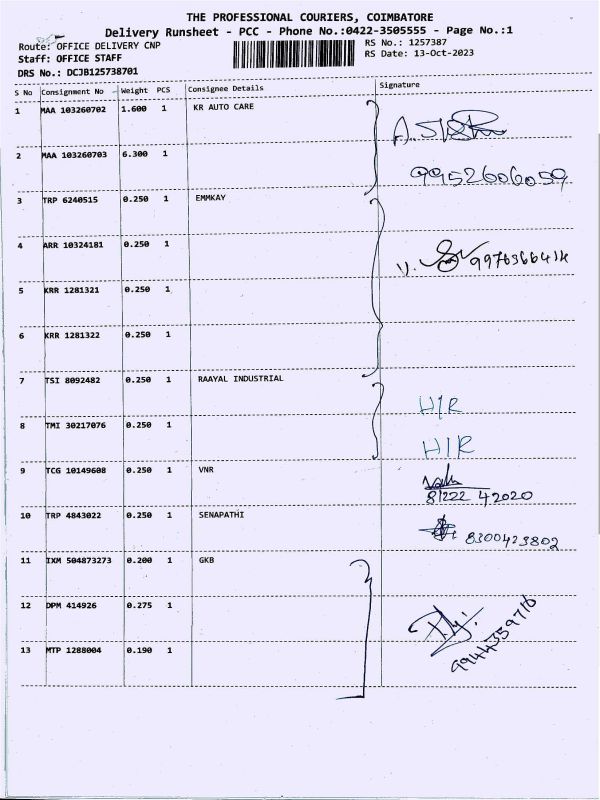 THE PROFESSIONAL COURIERS, COIMBATORE
Delivery Runsheet - PCC - Phone No.:0422-3505555 - Page No.:1
Route: OFFICE DELIVERY CNP
RS No.: 1257387
Staff: OFFICE STAFF
RS Date: 13-Oct-2023
DRS No.: DCJB125738701
S No Consignment No Weight PCS Consignee Details Signature
1 MAA 103260702 1.600 1 KR AUTO CARE
2 MAA 103260703 6.300 1
9952606059
3 TRP 6240515 0.250 1 EMMKAY
4 ARR 10324181 0.250 1
9976366414
5 KRR 1281321 0.250 1
6 KRR 1281322 0.250 1
7 TSI 8092482 0.250 1 RAAYAL INDUSTRIAL
H/R
8 TMI 30217076 0.250 1
H/R
9 TCG 10149608 0.250 1 VNR
81222 42020
10 TRP 4843022 0.250 1 SENAPATHI
8300423802
11 IXM 504873273 0.200 1 GKB
12 DPM 414926 0.275 1
9944359716
13 MTP 1288004 0.190 1